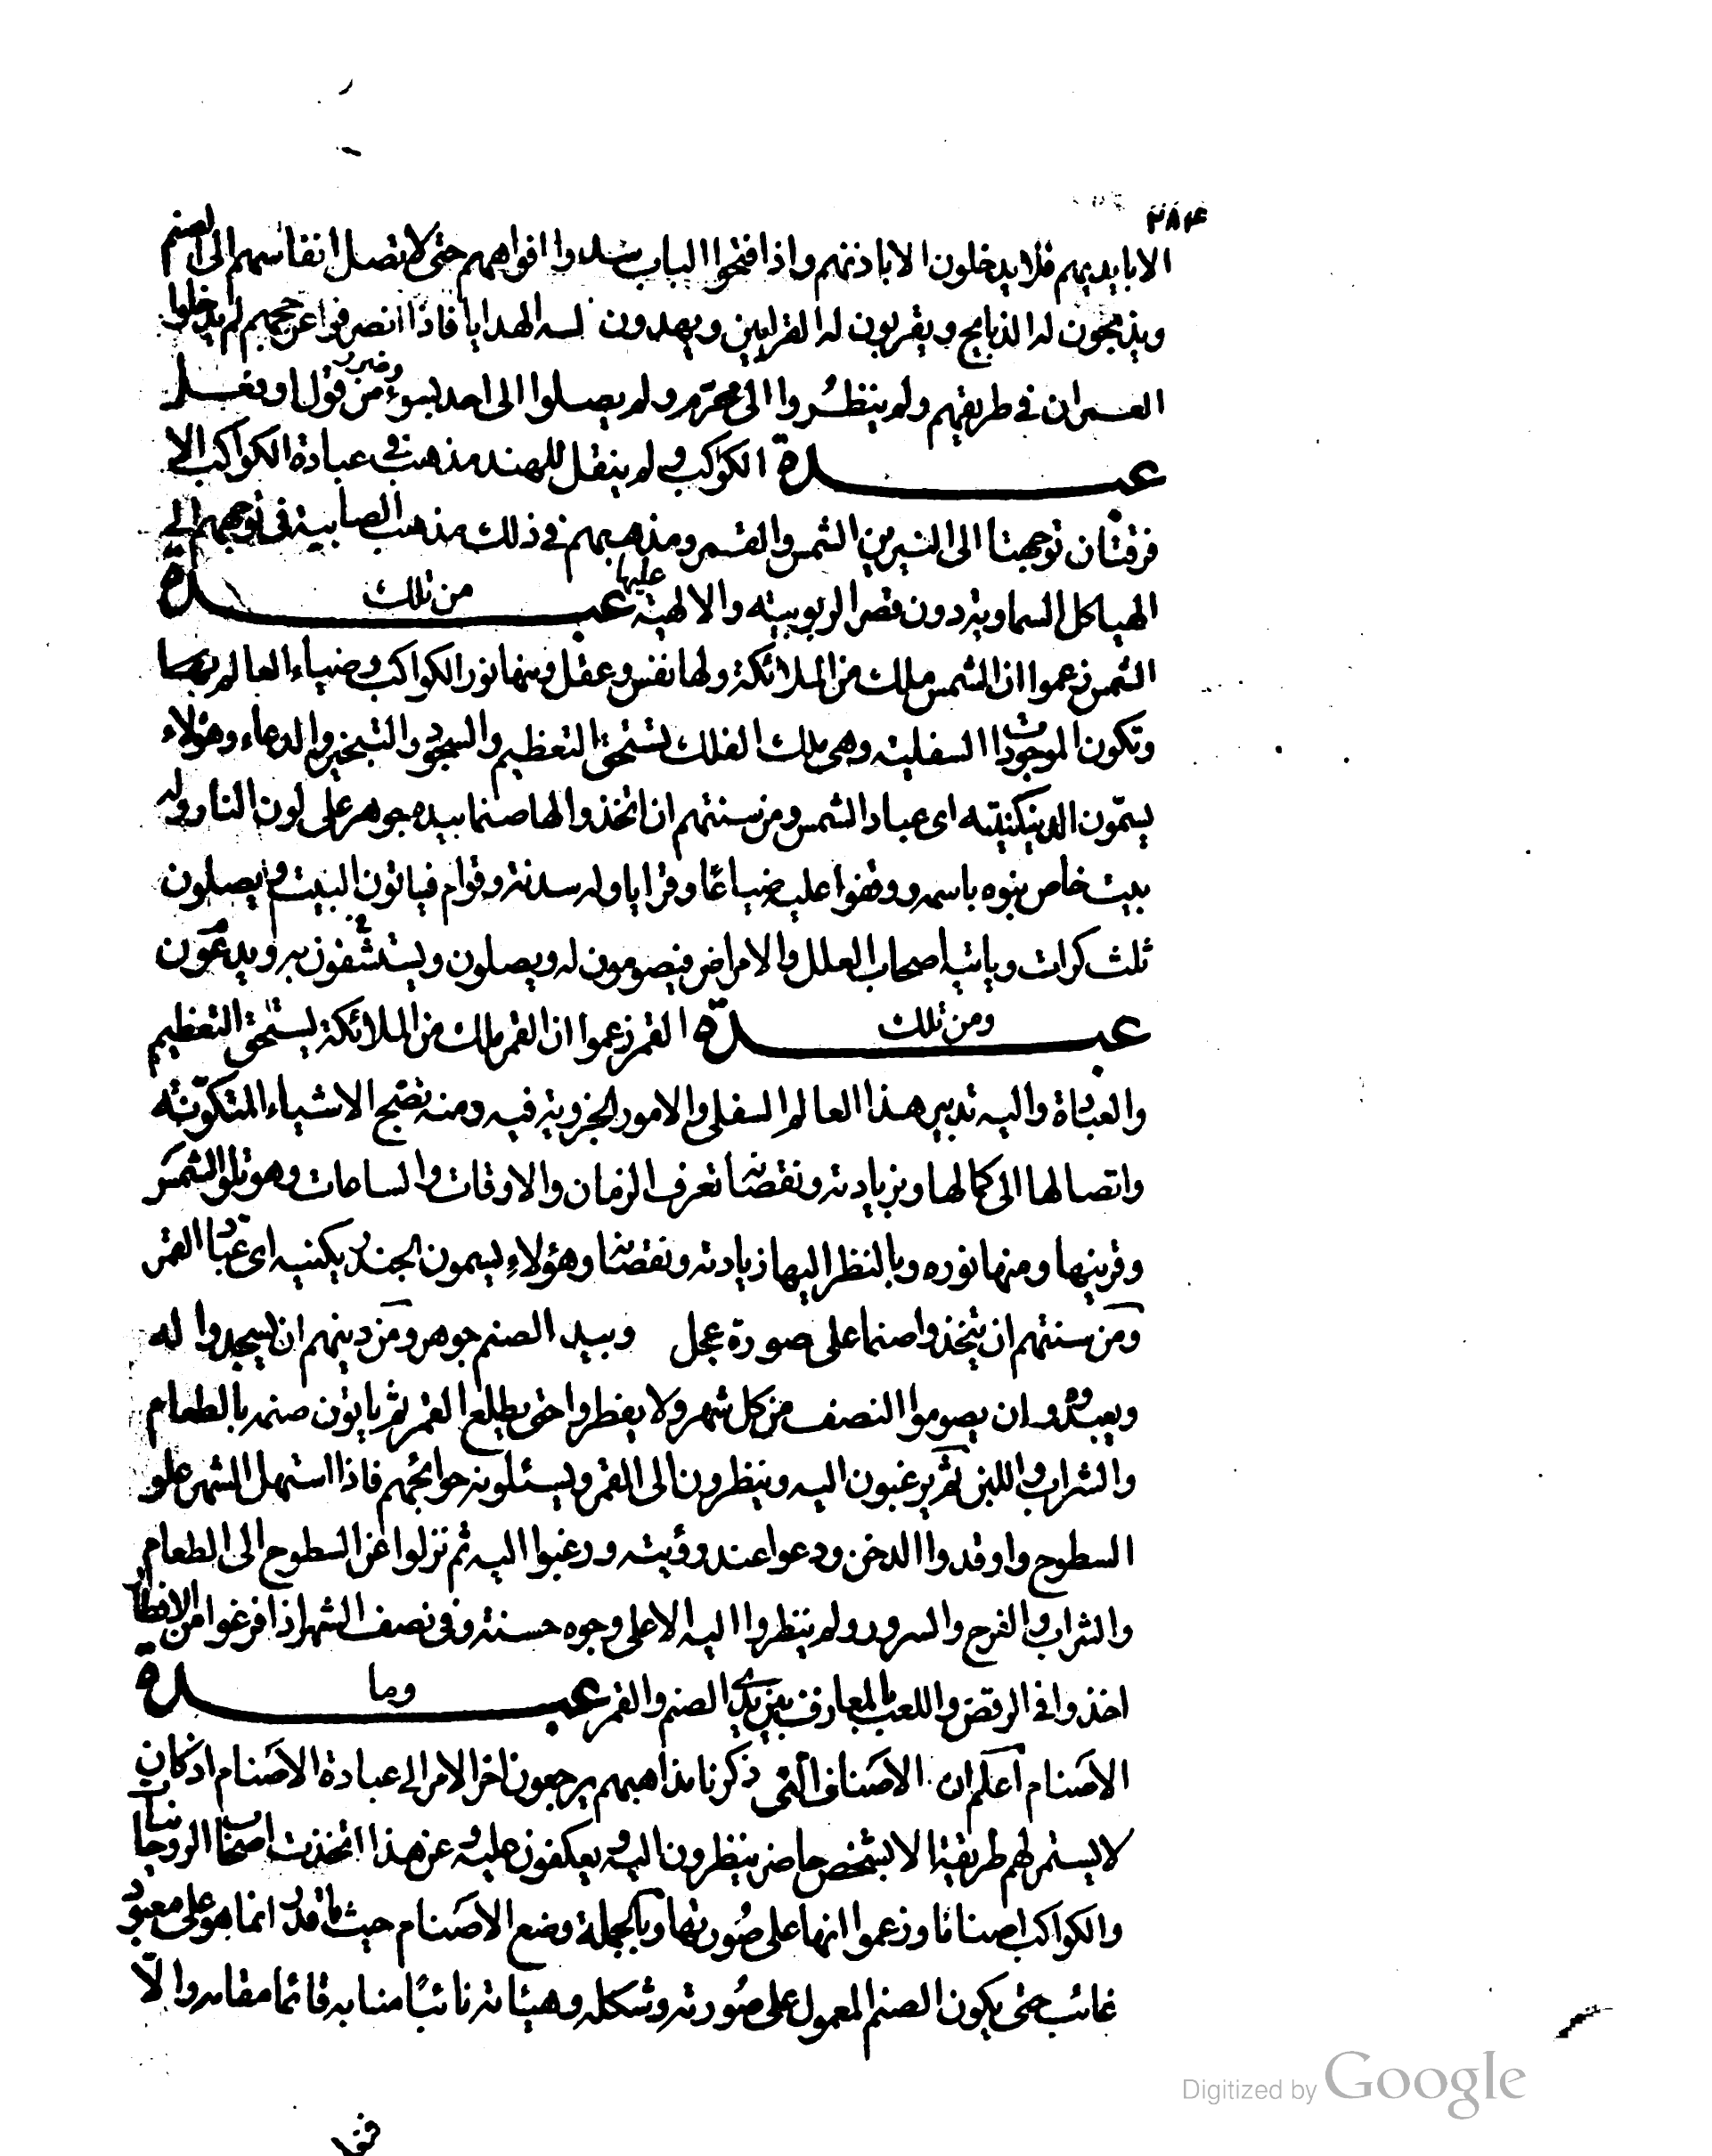 ٢٨٤
الا بايديهم فلا يدخلون الا باذنهم واذا فتحوا الباب سدوا افواههم حتى لا تصل انفاسهم الى الصنم
ويذبحون له الذبايح ويقربون له القرابين ويهدون له الهدايا فاذا انصرفوا عن حجهم لم يدخلوا
العمران في طريقهم ولم ينظروا الى محرم ولم يصلوا الى احد بسوء وضرر من قول او فعل
عبدة الكواكب ولم ينقل للهند مذهب في عبادة الكواكب الا
فرقتان توجهتا الى النيرين الشمس والقمر ومذهبهم في ذلك مذهب الصابية في توجههم الى
الهياكل السماوية دون قصر الربوبيته والالهية عليها عبدة من تلك
الشمس زعموا ان الشمس ملك من الملائكة ولها نفس وعقل ومنها نور الكواكب وضياء العالم بها
وتكون الموجودات السفليته وهى ملك الفلك تستحق التعظيم والسجود والتبخير والدعاء وهؤلاء
يسمون الدينكيتيه اى عباد الشمس ومن سنتهم ان اتخذوا لها صنما بيده جوهر على لون النار وله
بيت خاص بنوه باسمه ووقفوا عليه ضياعا وقرايا وله سدنة وقوام فياتون البيت ويصلون
ثلث كرات وياتيه اصحاب العلل والامراض فيصومون له ويصلون ويستشفون به ويدعون
عبدة ومن تلك القمر زعموا ان القمر ملك من الملائكة يستحق التعظيم
والعبادة واليه تدبير هذا العالم السفلى والامور الجزوية فيه ومنه نضج الاشياء المتكونته
واتصالها الى كمالها وبزيادته ونقصانه تعرف الزمان والاوقات والساعات وهو تلو الشمس
وقرينها ومنها نوره وبالنظر اليها زيادته ونقصانه وهؤلاء يسمون الجندريكنيه اى عباد القمر
ومن سنتهم ان يتخذوا صنما على صورة عجل وبيد الصنم جوهر ومن دينهم ان يسجدوا له
ويعبدوه وان يصوموا النصف من كل شهر ولا يفطروا حتى يطلع القمر ثم ياتون صنمه بالطعام
والشراب واللبن ثم يرغبون اليه وينظرون الى القمر ويسئلونه حوائجهم فاذا استهل الشهر علو
السطوح واوقدوا الدخن ودعوا عند رؤيته ورغبوا اليه ثم نزلوا عن السطوح الى الطعام
والشراب والفرح والسرور ولم ينظروا اليه الا على وجوه حسنة وفى نصف الشهر اذا فرغوا من الافطار
اخذوا فى الرقص واللعب بالمعازف بين يدى الصنم والقمر عبدة وما
الاصنام اعلم ان الاصناف التى ذكرنا مذاهبهم يرجعون اخر الامر الى عبادة الاصنام اذ كان
لا يستمر لهم طريقة الا بشخص حاضر ينظرون اليه ويعكفون عليه وعن هذا اتخذت اصحاب الروحانيات
والكواكب اصناما وزعموا انها على صورتها وبالجملة وضع الاصنام حيث ما قدر انما هو على معبود
غائب حتى يكون الصنم المعمول على صورته وشكله وهيئاته نائبا منابه قائما مقامه والا
Digitized by Google